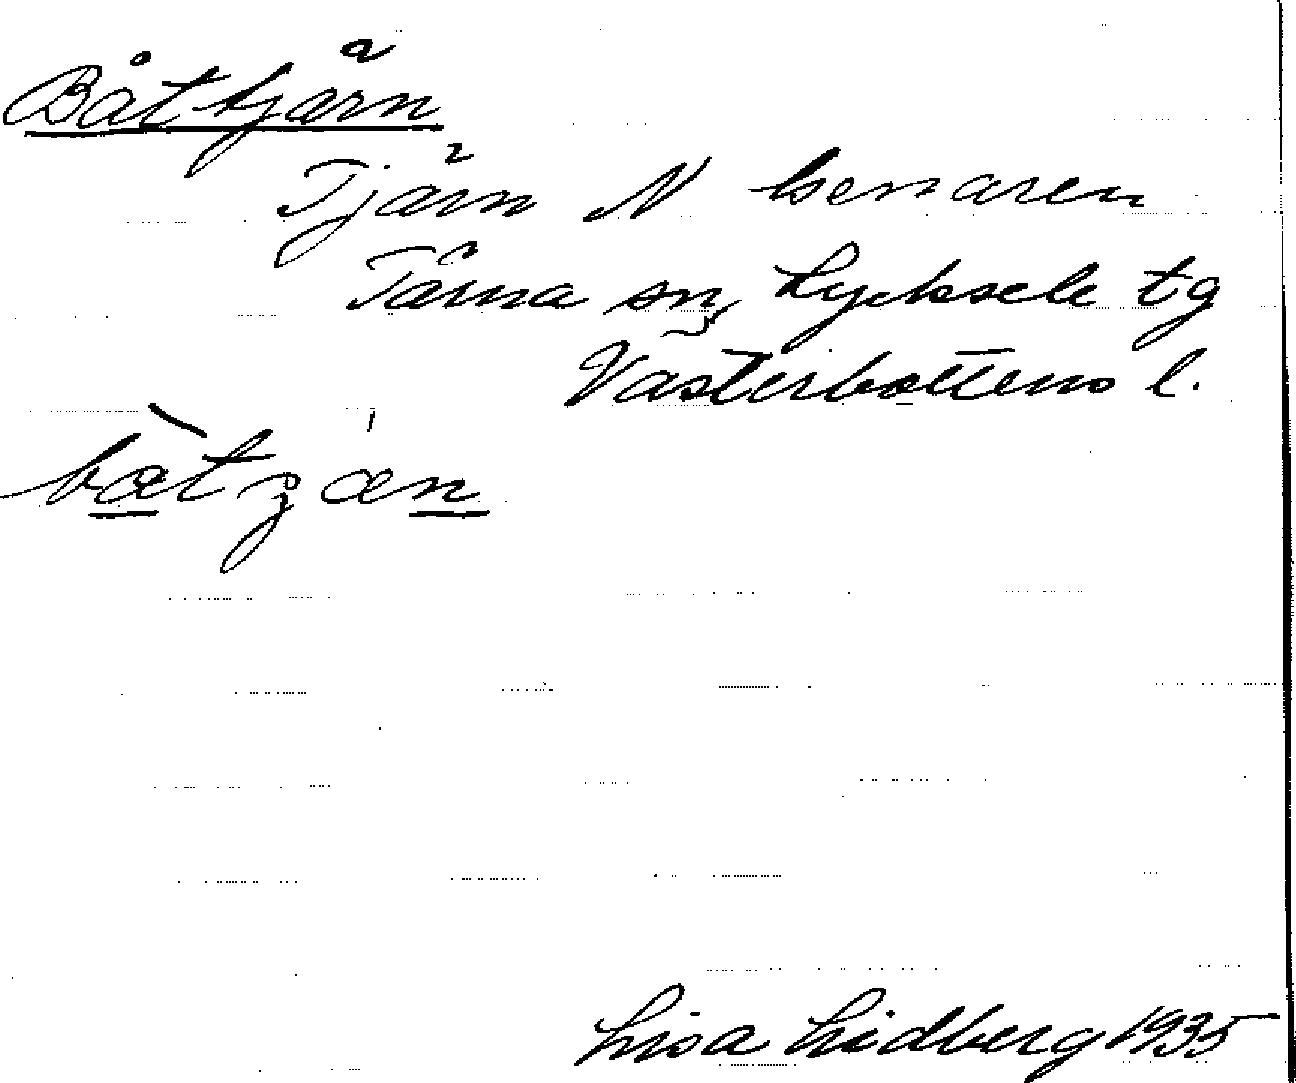 Båttjärn
Tjärn N
Tärna sn, Lycksele tg
Västerbottens l.
Lisa Lidberg 1935